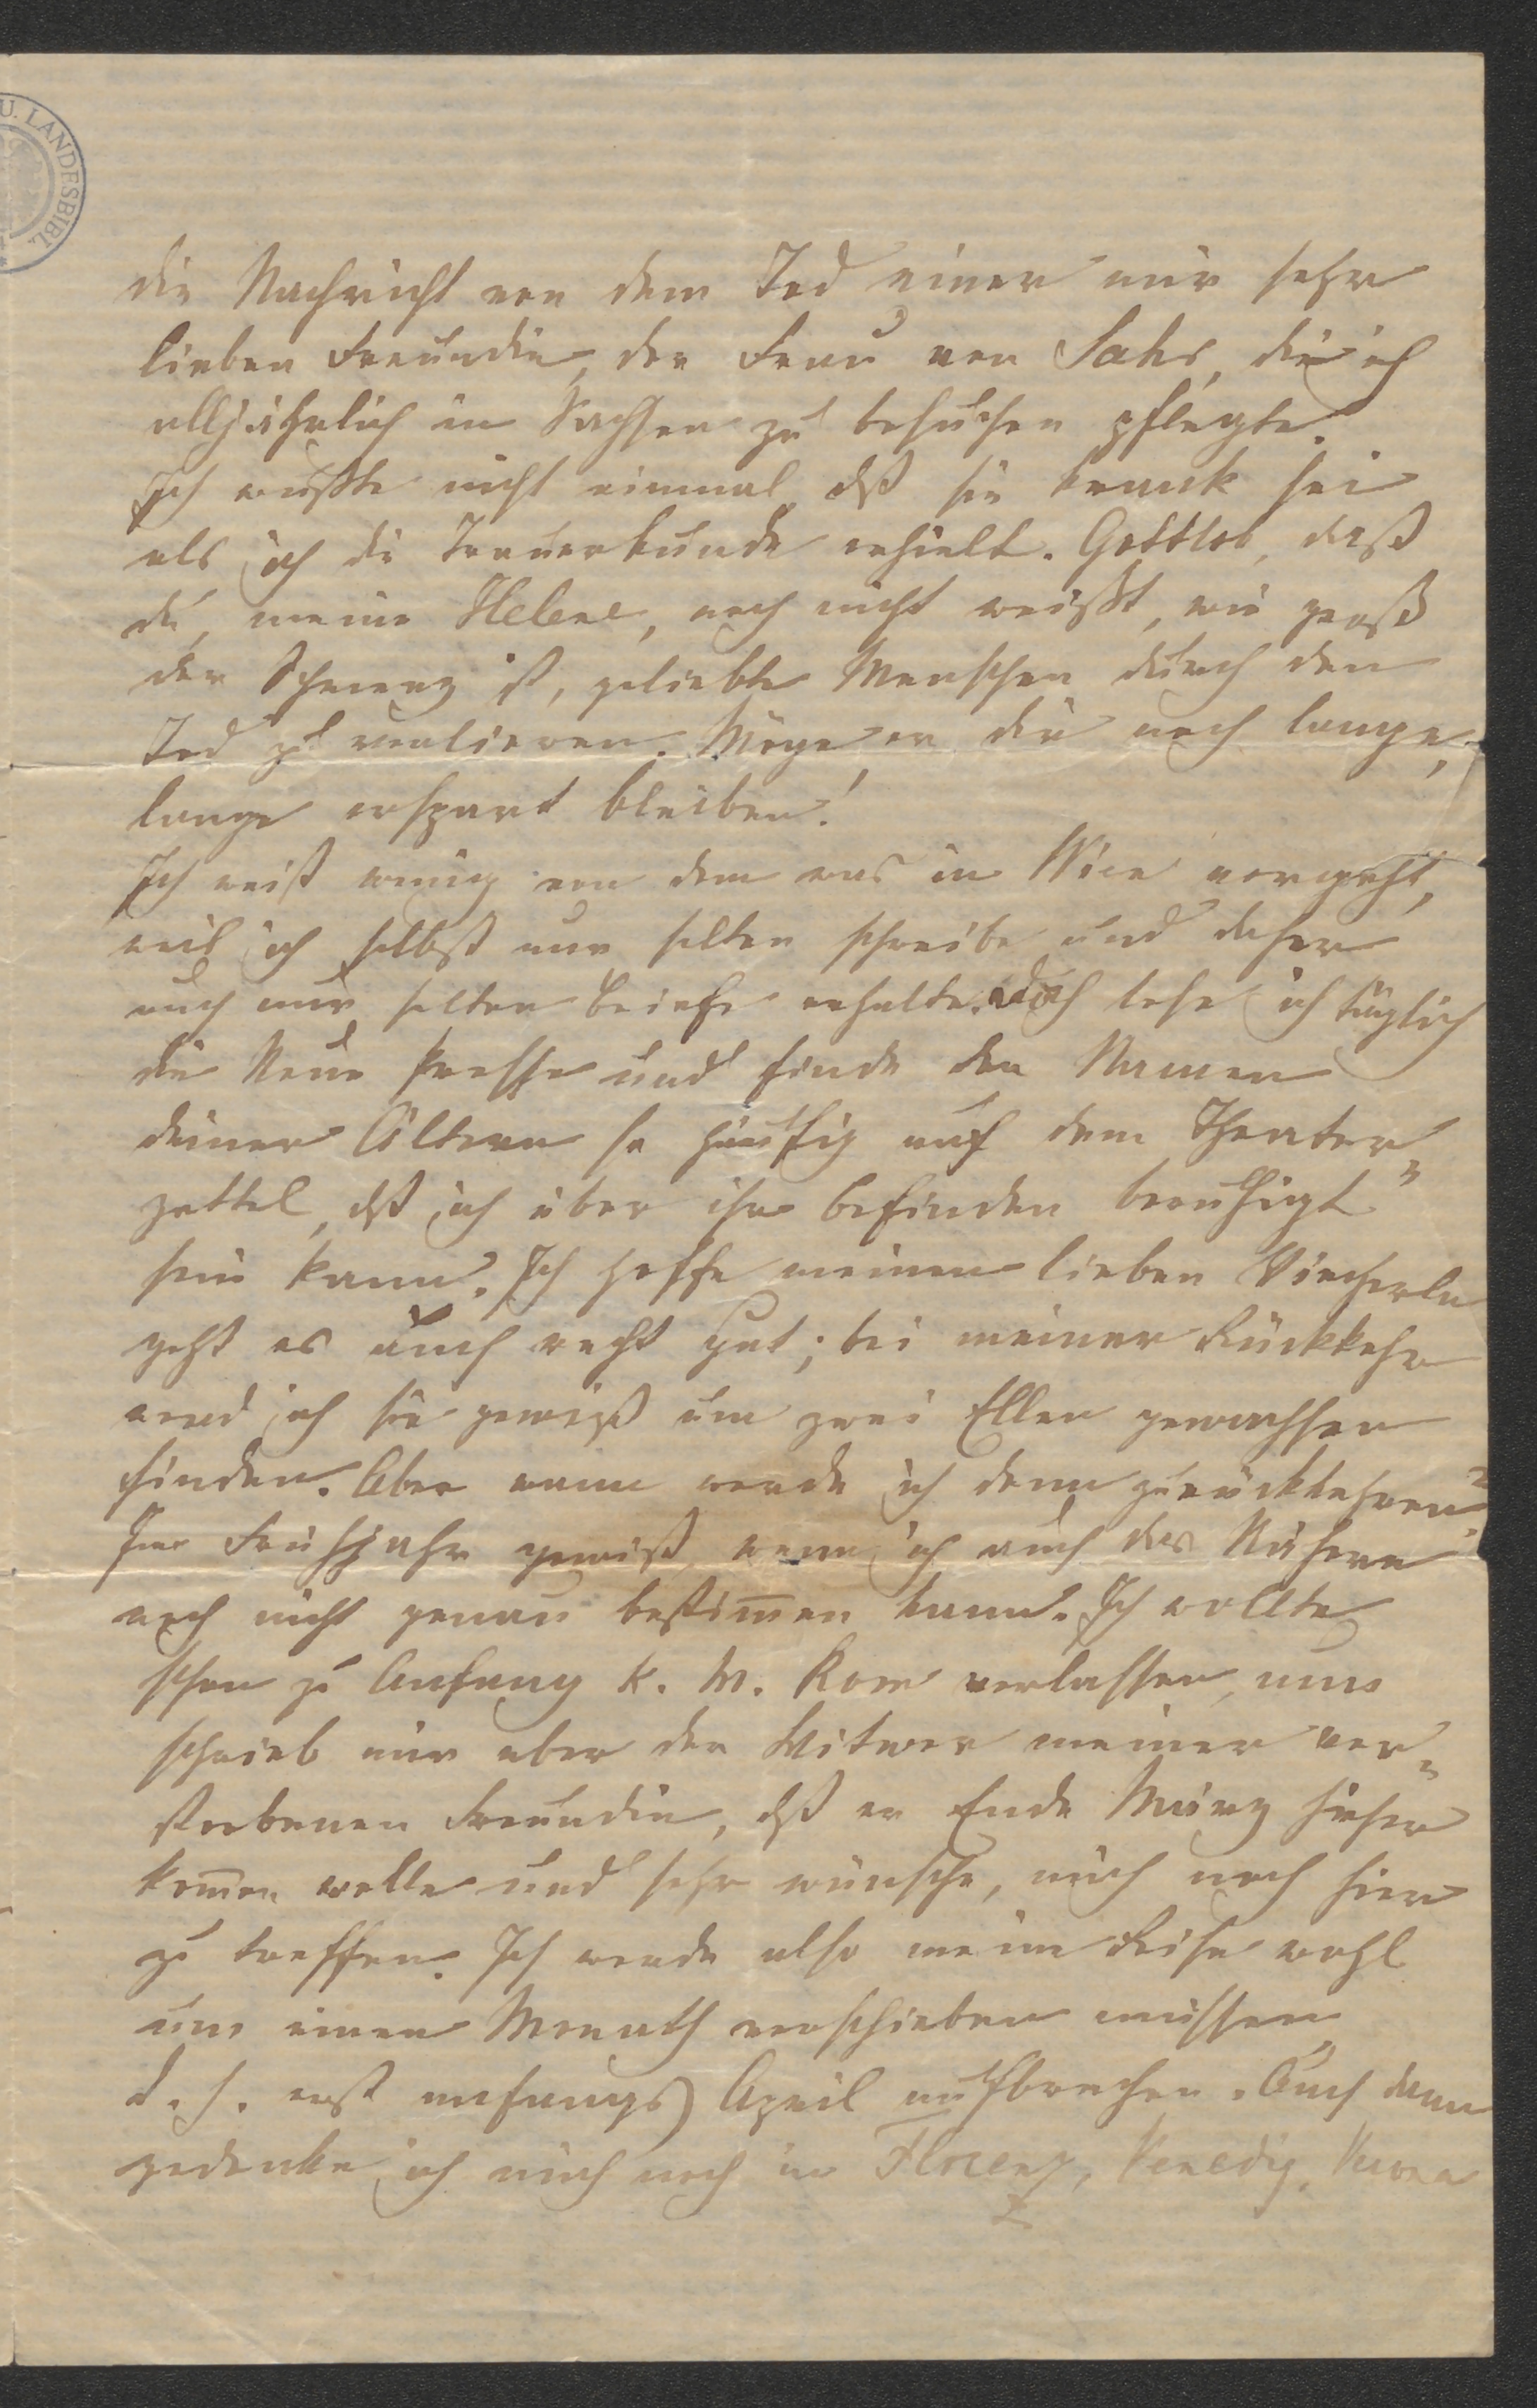 U. LANDESBIBL.
die Nachricht von dem Tod einer mir sehr
lieben Freundin, der Frau von Sahr, die ich
alljährlich in Sachsen zu besuchen pflegte.
Ich wußte nicht einmal dß sie krank sei
als ich die Trauerkunde erhielt. Gottlob, daß
du, meine Helene, noch nicht weißt, wie groß
der Schmerz ist, geliebte Menschen durch den
Tod zu verlieren. Möge er dir noch lange,
lange erspart bleiben!
Ich weiß wenig von dem was in Wien vorgeht,
weil ich selbst nur selten schreibe und daher
auch nur selten Briefe erhalte. doch lese ich täglich
die Neue Presse und finde den Namen
deiner Ältern so häufig auf dem Theater„
zettel, dß ich über ihr Befinden beruhigt
sein kann. Ich hoffe meinen lieben Viecherln
geht es auch recht gut; bei meiner Rückkehr
werd ich sie gewiß um zwei Ellen gewachsen
finden. Aber wann werde ich denn zurückkehren?
Im Frühjahr gewiß, wenn ich auch das Nähere
noch nicht genau bestim̅en kann. Ich wollte
schon zu Anfang k. M. Rom verlassen, nun
schrieb mir aber der Witwer meiner ver„
storbenen Freundin, dß er Ende März hieher
kom̅en wolle und sehr wünsche, mich noch hier
zu treffen. Ich werde also meine Reise wohl
um einen Monath verschieben müssen,
d. h. erst anfangs April aufbrechen. Auch dann
gedenke ich mich noch in Florenz, Venedig, Verona